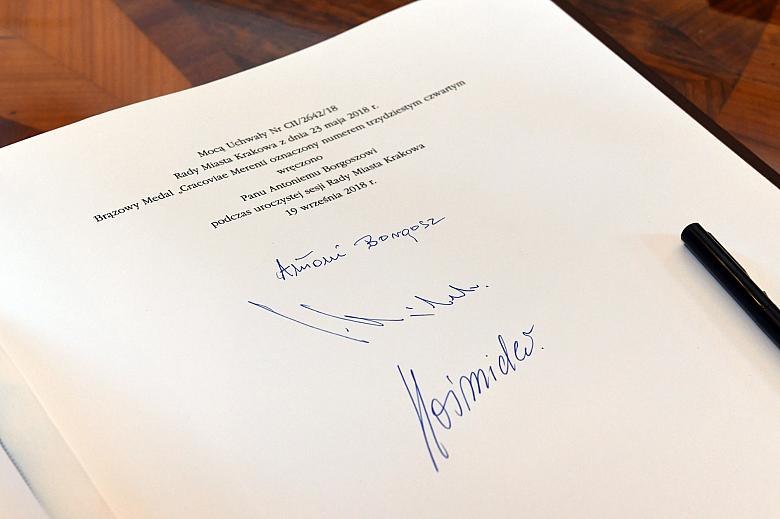 Mocą Uchwały Nr CII/2642/18
Rady Miasta Krakowa z dnia 23 maja 2018 r.
Brązowy Medal „Cracoviae Merenti oznaczony numerem trzydziestym czwartym
wręczono
Panu Antoniemu Borgoszowi
podczas uroczystej sesji Rady Miasta Krakowa
19 września 2018 r.
Antoni Borgosz